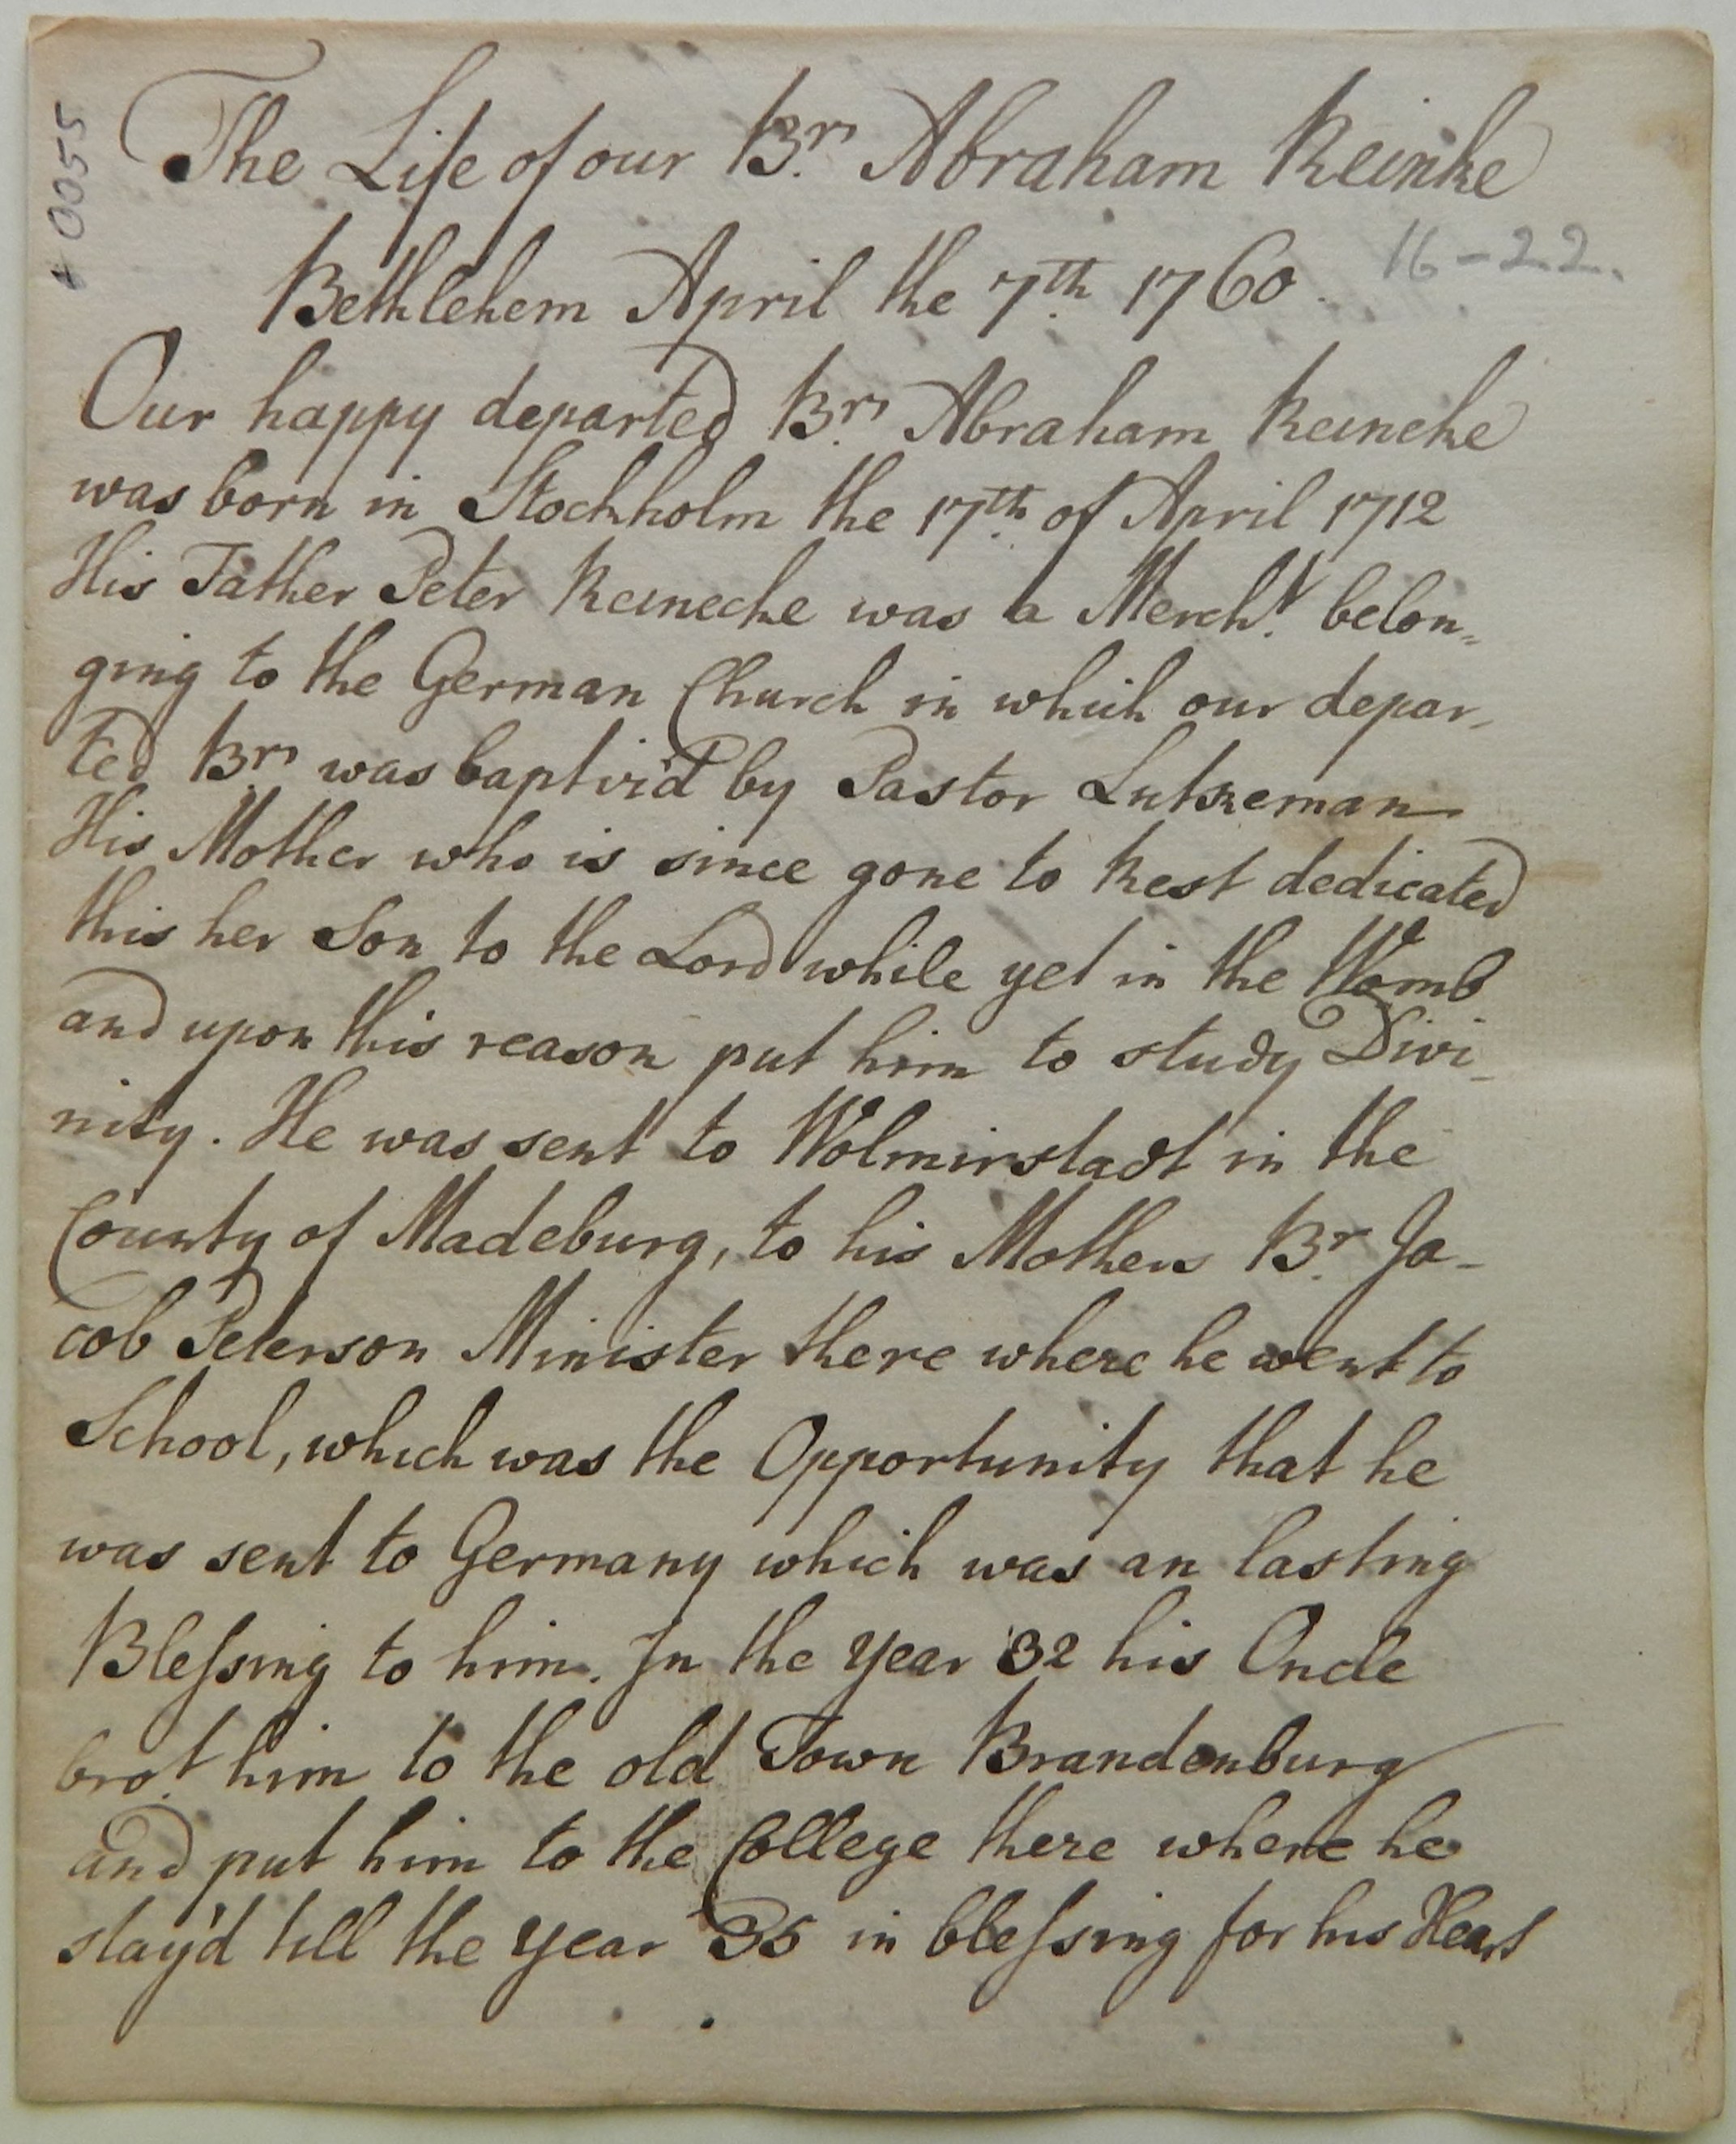 + 0055
The Life of our Br. Abraham Reinke
16-22.
Bethlehem April the 7th. 1760.
Our happy departed Br. Abraham Reineke
was born in Stockholm the 17th. of April 1712
His Father Peter Reinecke was a Mercht. belon,,
ging to the German Church in which our depar,,
ted Br. was baptiz'd by Pastor Lutkeman
His Mother who is since gone to Rest dedicated
this her Son to the Lord while yet in the Womb
and upon this reason put him to study Divi-
nity. He was sent to Wolmirstadt in the
County of Madeburg, to his Mothers Br. Ja-
cob Peterson Minister there where he went to
School, which was the Opportunity that he
was sent to Germany which was an lasting
Blessing to him. In the year 32 his Oncle
brot. him to the old Town Brandenburg
and put him to the College there where he
stay'd till the year 35 in blessing for his Heart